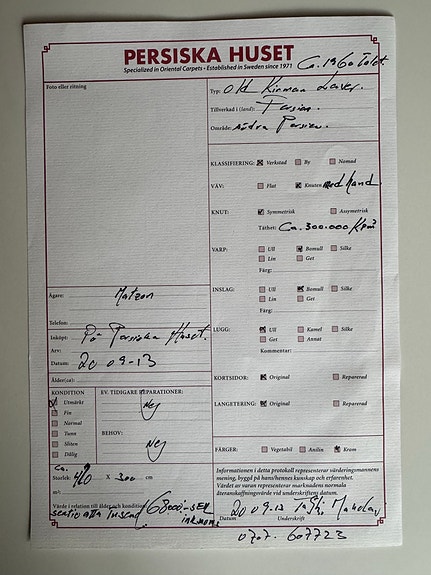 PERSISKA HUSET
Specialized in Oriental Carpets - Established in Sweden since 1971
Ca. 1960 talet
Foto eller ritning
Typ: Old Kirman Laver.
Tillverkad i (land): Persien.
Område: Södra Persien.
KLASSIFIERING: Verkstad By Nomad
VÄV: Flat Knuten med hand
KNUT: Symmetrisk Assymetrisk
Täthet: Ca. 300.000 K pm²
VARP: Ull Bomull Silke
Lin Get
Färg:
INSLAG: Ull Bomull Silke
Lin Get
Färg:
LUGG: Ull Kamel Silke
Get Annat
Kommentar:
KORTSIDOR: Original Reparerad
LANGETERING: Original Reparerad
FÄRGER: Vegetabil Anilin Krom
Ägare: Matzon
Telefon:
Inköpt: På Persiska Huset.
Arv:
Datum: 2009-13
Ålder(ca):
KONDITION
Utmärkt
Fin
Normal
Tunn
Sliten
Dålig
EV. TIDIGARE REPARATIONER:
Nej
BEHOV:
Nej
Ca.
Storlek: 420 X 300 cm
m²:
Värde i relation till ålder och kondition
68000:- SEK
sextioåtta tusen
ink moms
Informationen i detta protokoll representerar värderingsmannens
mening, byggd på hans/hennes kunskap och erfarenhet.
Värdet av varan representerar marknadens normala
återanskaffningsvärde vid underskriftens datum.
2009-13
Datum Underskrift
0707. 607723